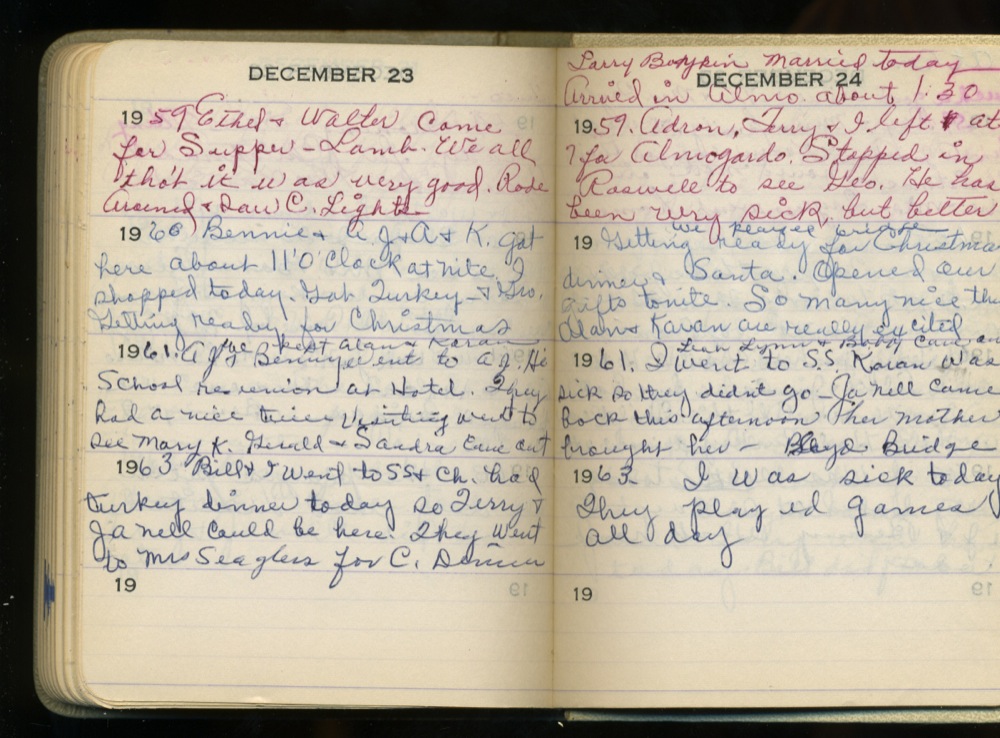 DECEMBER 23
1959 Ethel & Walter Came
for Supper - Lamb. We all
thot it was very good. Rode
around & Saw C. Lights
1960 Bennie & A J & A & K. got
here about 11'0'Clock at nite. I
shopped today. Got Turkey - & Gro.
Getting ready for Christmas
we kept Alan & Karan
1961. A J & Benny went to A J. Hi
School reunion at Hotel. They
had a nice time visiting went to
see Mary K. Gerald & Sandra Came out
1963 Bill & I went to SS & Ch. had
turkey dinner today so Terry &
Ja Nell could be here. They went
to Mrs Seaglers for C. Dinner
19
DECEMBER 24
Larry Boykin Married today
Arrived in Almo. about 1:30
1959. Adron, Terry & I left at
7 for Almogardo. Stopped in
Roswell to see Geo. He has
been very sick, but better
we
19 Getting ready for Christma
dinner & Santa. Opened our
gifts tonite. So many nice thi
Alan & Karan are really excited
Lynn & Bobby Came
1961. I went to S.S. Karan was
sick so they didnt go - Ja Nell came
back this afternoon her mother
brought her - Bridge
1963 I was sick today
They played games
all day
19